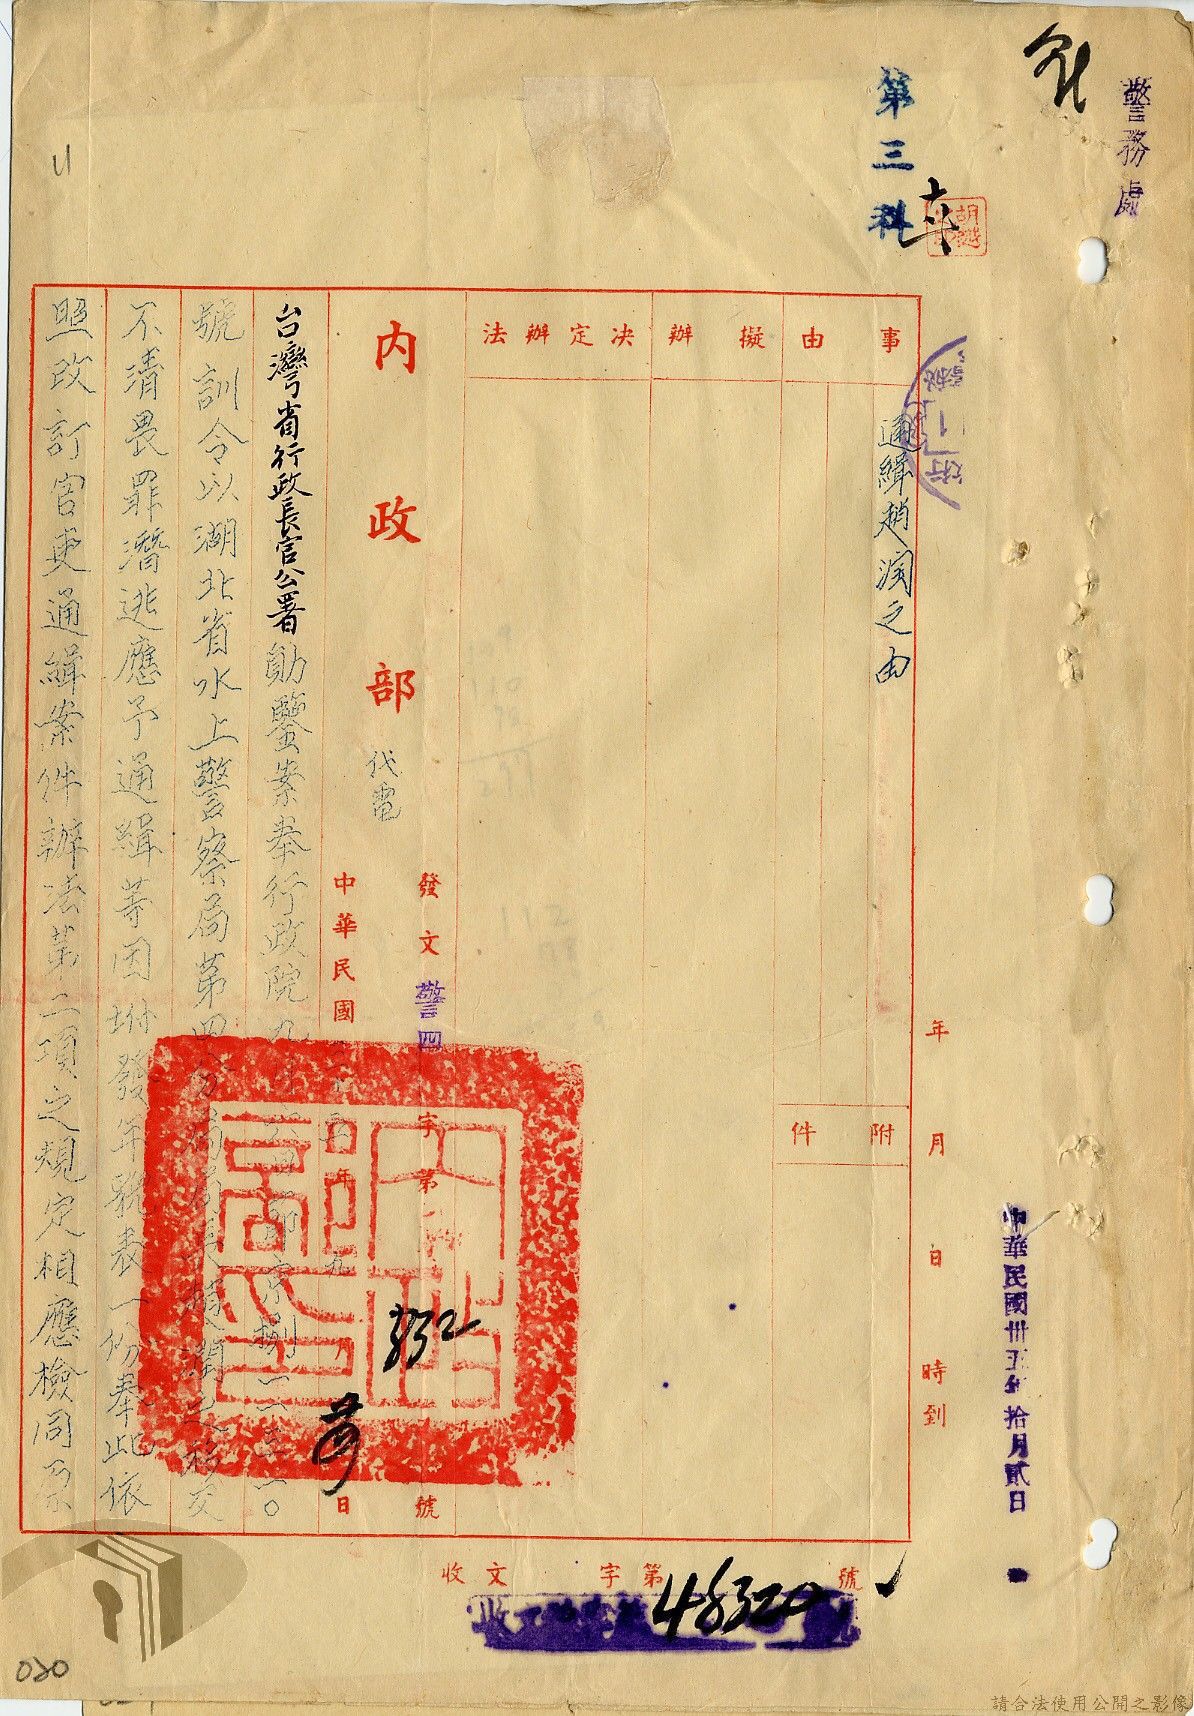 警務處
第三科
中華民國卅五年拾月貳日
年 月 日 時到
事由
通緝趙潤之由
附件
擬辦
決定辦法
內政部代電
發文 警四 字第 號
332
中華民國 年九月 日
台灣省行政長官公署勛鑒案奉行政院九月 日節京捌一一三一〇
號訓令以湖北省水上警察局第四分局局長趙潤之移交
不清畏罪潛逃應予通緝等因坿發年貌表一份奉此依
照改訂官吏通緝案件辦法第二項之規定相應檢同原
收文 字第 號
48320
020
請合法使用公開之影像